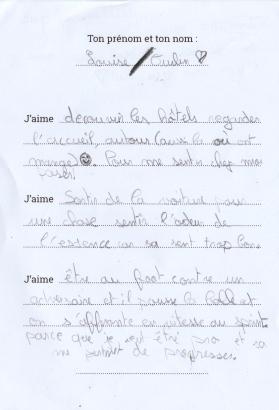 Ton prénom et ton nom :
Louise / Oudin
J'aime découvrir les hôtels regarder
l'accueil, autour (aussi le où ont
mange) Pour me sentir chez moi
J'aime Sortir de la voiture pour
une chose sentir l'odeur de
l'essence car sa sent trop bon
J'aime être au foot contre un
adversaire et il pousse la balle et
on s'affronte en vitesse au sprint
parce que je veut être pro et sa
me permet de progresser.